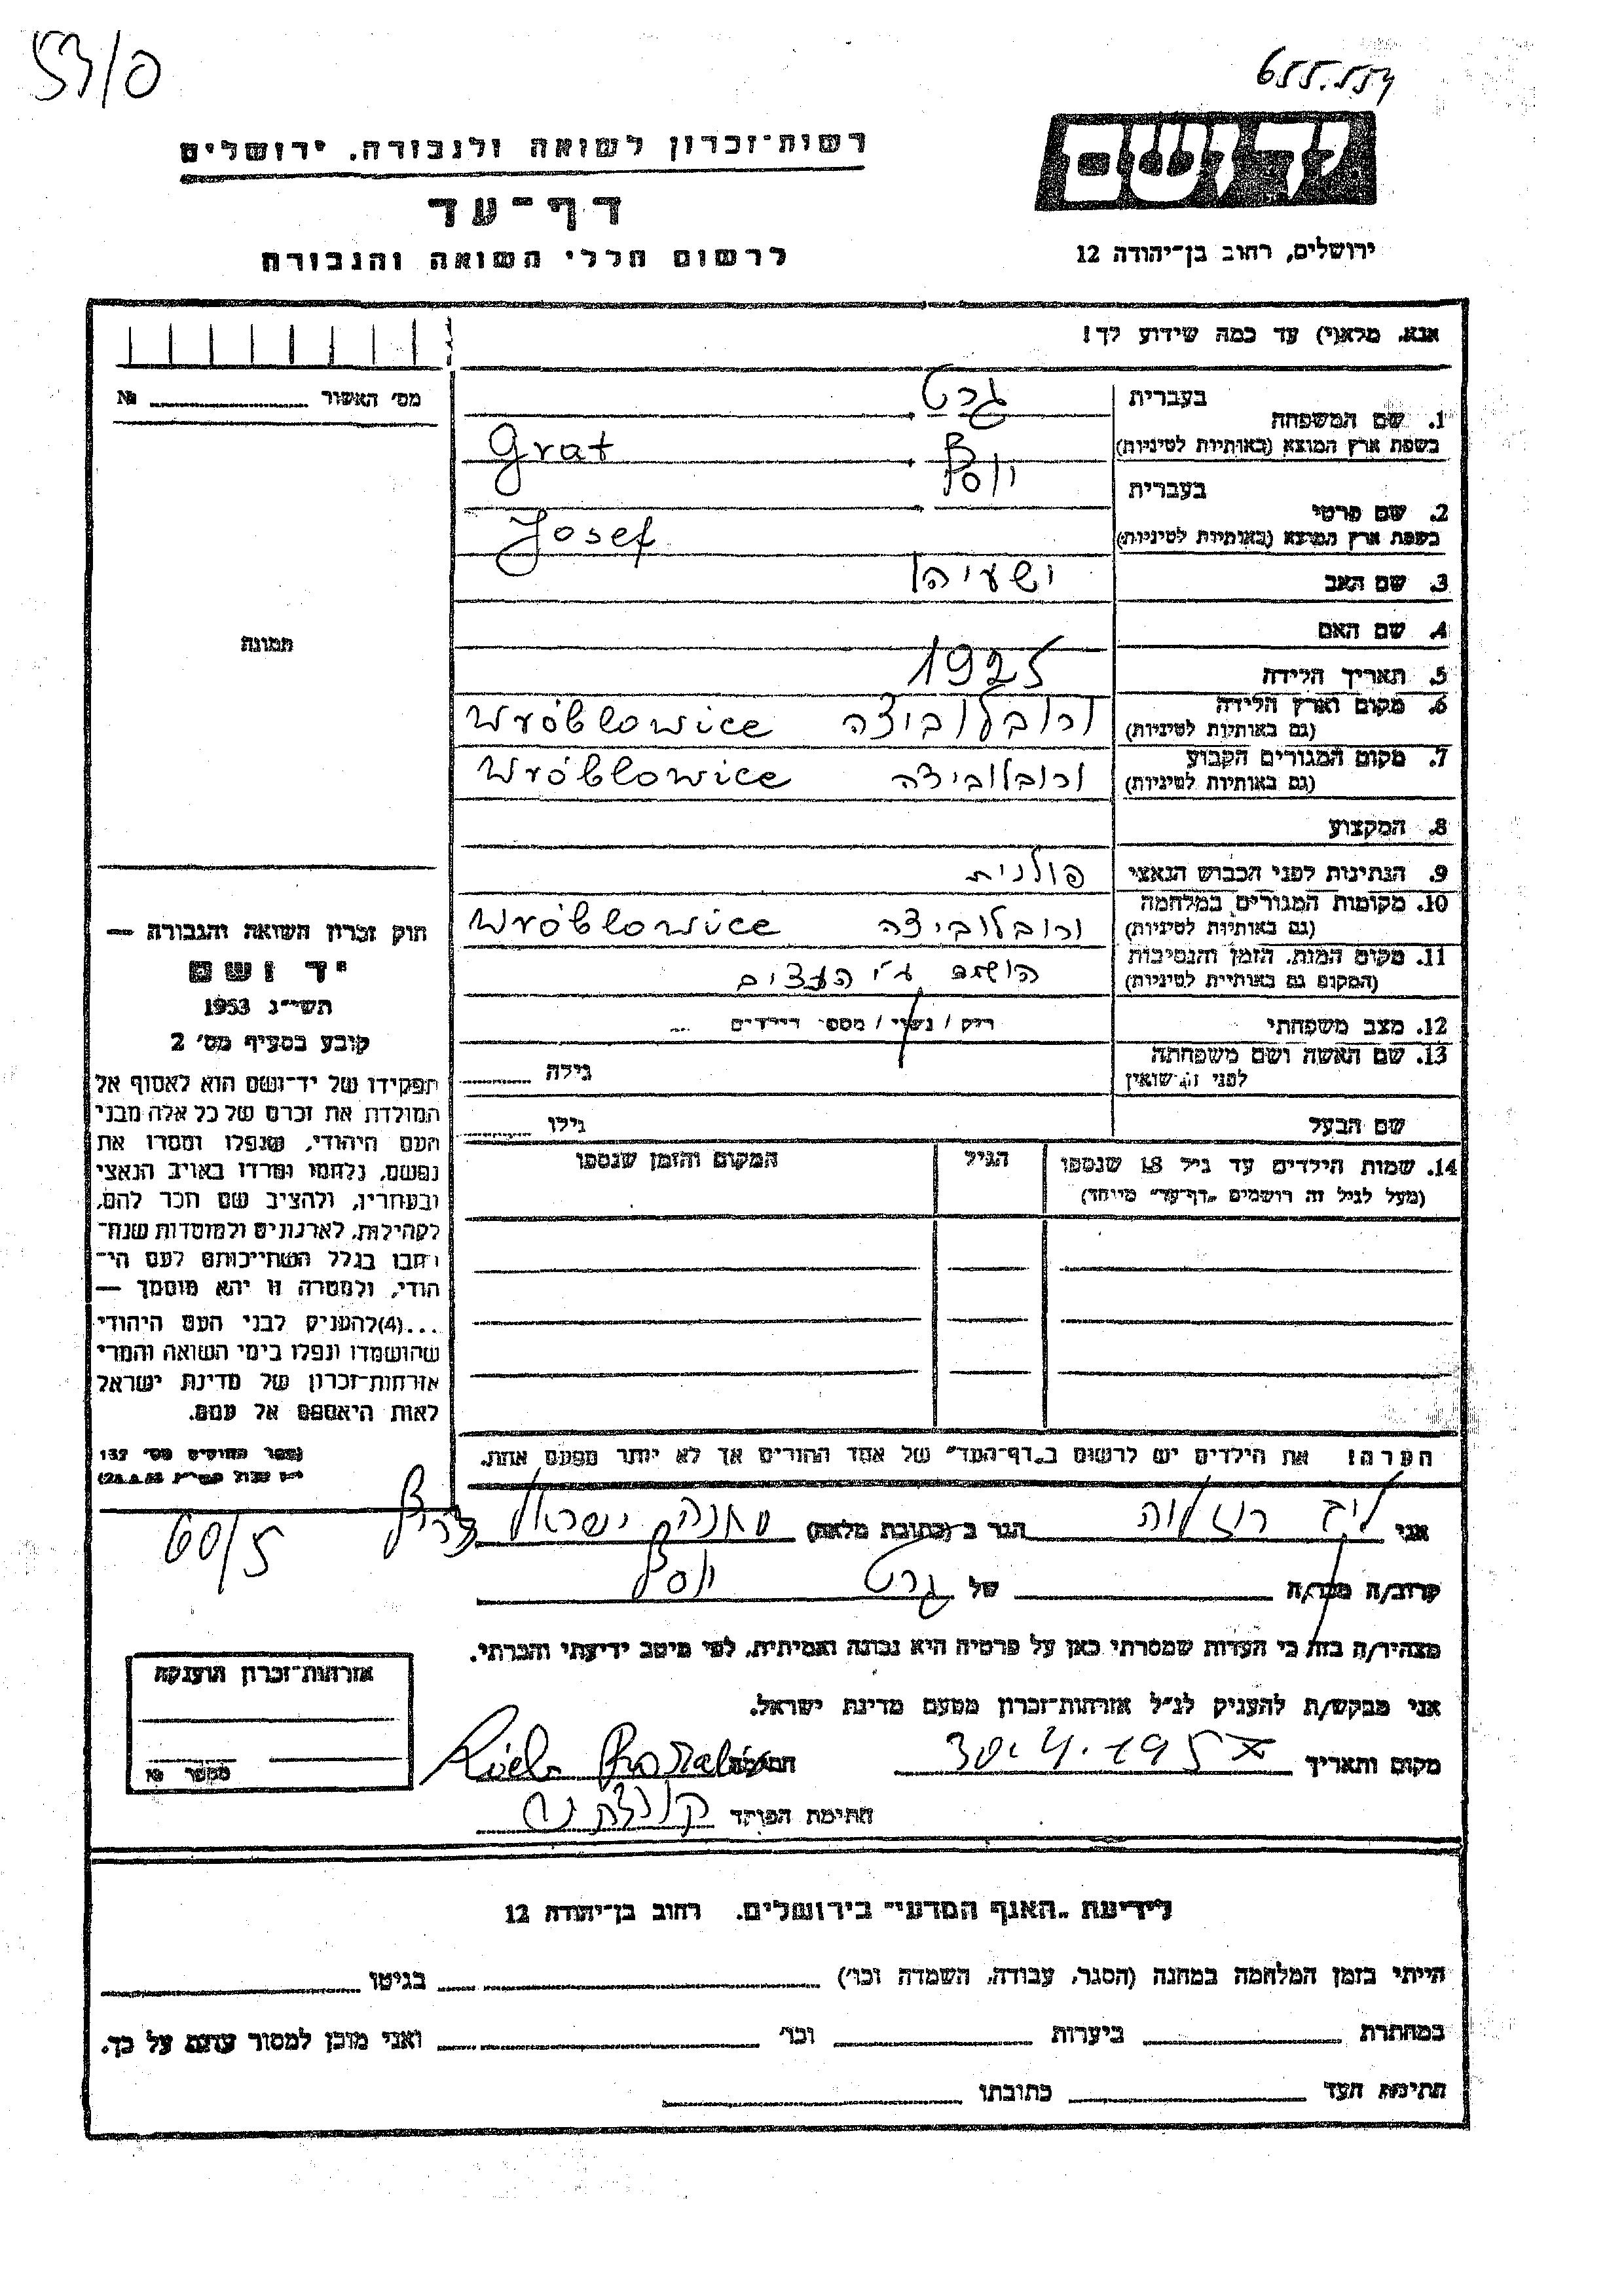 53/0
655.554
רשות־זכרון לשואה ולגבורה. ירושלים
יד ושם
דף־עד
לרשום חללי השואה והגבורה
ירושלים, רחוב בן־יהודה 12
אנא. מלא(י) עד כמה שידוע לך!
מס׳ האשור № 
1. שם המשפחה
בעברית גרט
בשפת ארץ המוצא (באותיות לטיניות) Grat
2. שם פרטי
בעברית יוסף
בשפת ארץ המוצא (באותיות לטיניות) Josef
3. שם האב ישעיהו
4. שם האם
תמונה
5. תאריך הלידה 1925
6. מקום וארץ הלידה
(גם באותיות לטיניות) ורובלוביצה Wróblowice
7. מקום המגורים הקבוע
(גם באותיות לטיניות) ורובלוביצה Wróblowice
8. המקצוע
9. הנתינות לפני הכבוש הנאצי פולנית
10. מקומות המגורים במלחמה
(גם באותיות לטיניות) ורובלוביצה Wróblowice
11. מקום המות. הזמן והנסיבות
(המקום גם באותיית לטיניות) הושמד ע״י הנאצים
12. מצב משפחתי רווק / נשוי / מספר הילדים
13. שם האשה ושם משפחתה
לפני הנשואין גילה
שם הבעל גילו
14. שמות הילדים עד גיל 18 שנספו הגיל המקום והזמן שנספו
(מעל לגיל זה רושמים „דף־עד״ מיוחד)
הערה! את הילדים יש לרשום ב„דף־העד״ של אחד ההורים אך לא יותר מפעם אחת.
חוק זכרון השואה והגבורה —
יד ושם
תשי״ג 1953
קובע בסעיף מס׳ 2
תפקידו של יד־ושם הוא לאסוף אל
המולדת את זכרם של כל אלה מבני
העם היהודי, שנפלו ומסרו את
נפשם, נלחמו ומרדו באויב הנאצי
ובעוזריו, ולהציב שם וזכר להם,
לקהילות, לארגונים ולמוסדות שנח־
רבו בגלל השתייכותם לעם הי־
הודי, ולמטרה זו יהא מוסמך —
...(4)להעניק לבני העם היהודי
שהושמדו ונפלו בימי השואה והמרי
אזרחות־זכרון של מדינת ישראל
לאות היאספם אל עמם.
(ספר החוקים מס׳ 132
אני רוזליה הגר ב־(כתובת מלאה) מחנה ישראל צריף
60/5
קרוב/ה מכר/ה של גרט יוסף
מצהיר/ה בזה כי העדות שמסרתי כאן על פרטיה היא נכונה ואמיתית, לפי מיטב ידיעתי והכרתי.
אני מבקש/ת להעניק לנ״ל אזרחות־זכרון מטעם מדינת ישראל.
מקום ותאריך 30.4.195 חתימה
חתימת הפוקד
אזרחות־זכרון הוענקה
מספר №
לידיעת „האגף המדעי״ בירושלים. רחוב בן־יהודה 12
הייתי בזמן המלחמה במחנה (הסגר, עבודה, השמדה וכו׳) בגיטו
במחתרת ביערות וכו׳ ואני מוכן למסור עדות על כך.
חתימת העד כתובתו